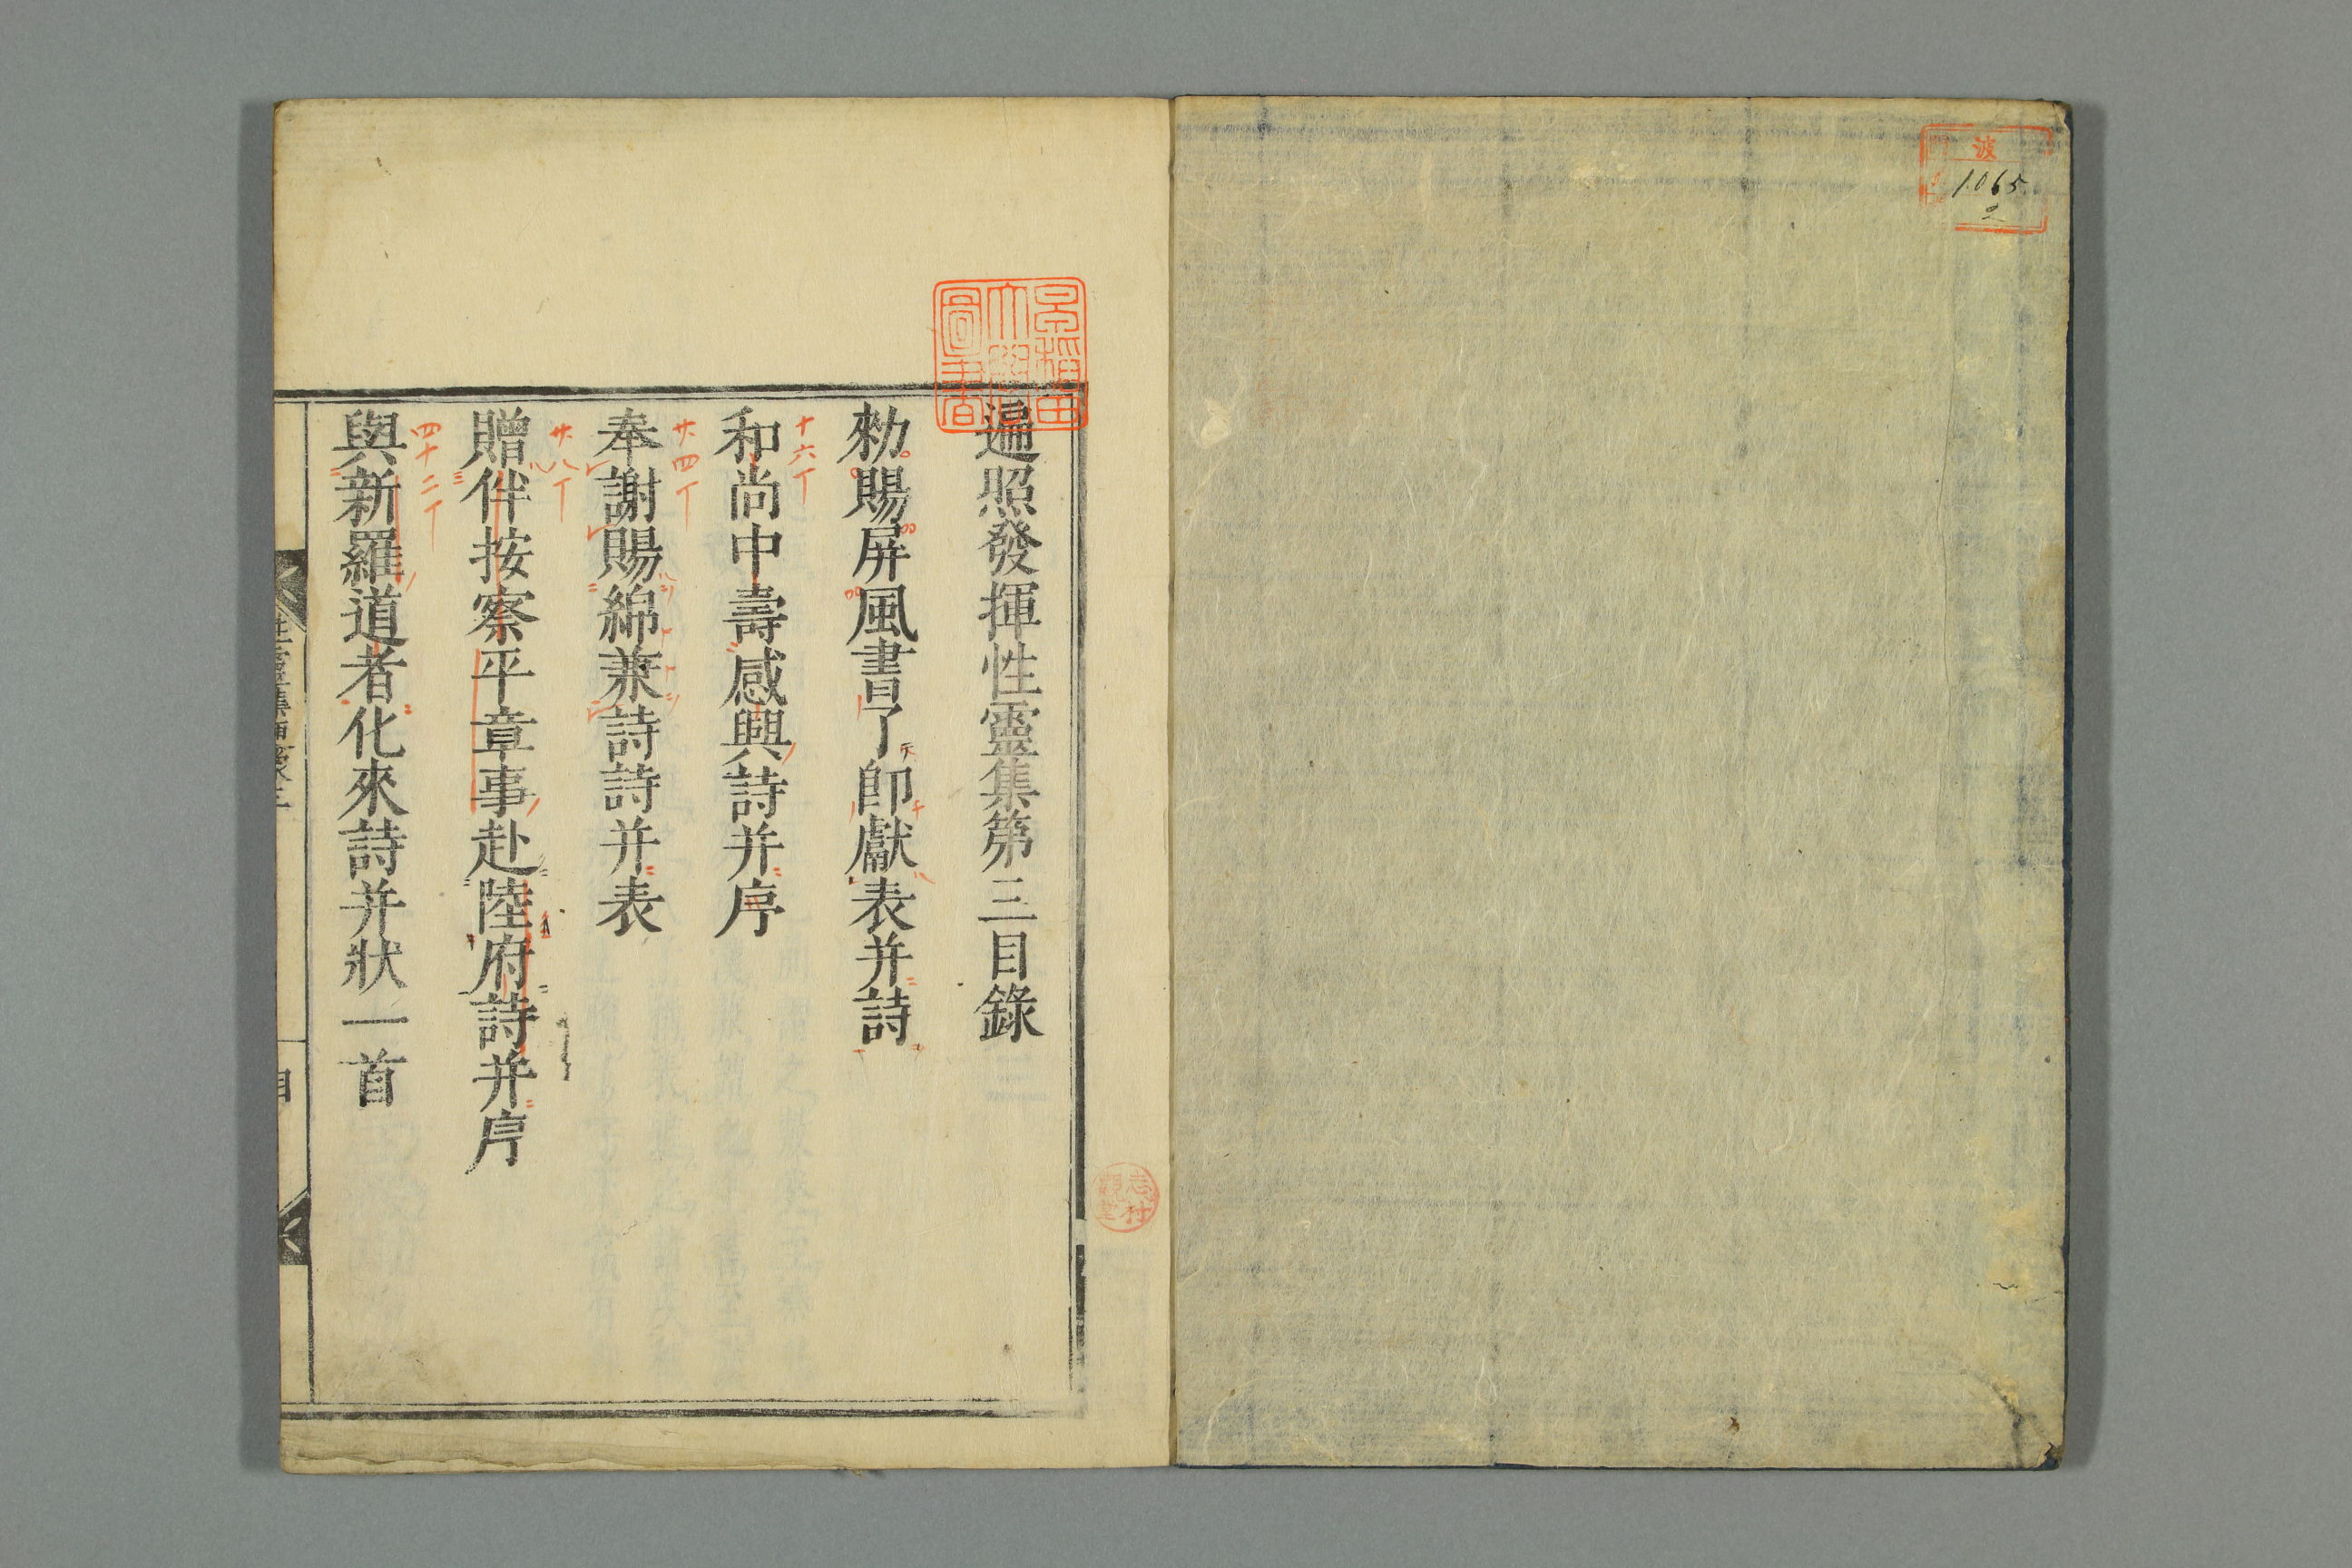 波
1065
2
早稲田
大學
圖書
遍照發揮性靈集第三目錄
勅賜屏風書了即獻表并詩
十六丁
和尚中壽感興詩并序
廿四丁
奉謝賜綿兼詩詩并表
廿八丁
贈伴按察平章事赴陸府詩并序
四十二丁
與新羅道者化來詩并狀一首
目
志村